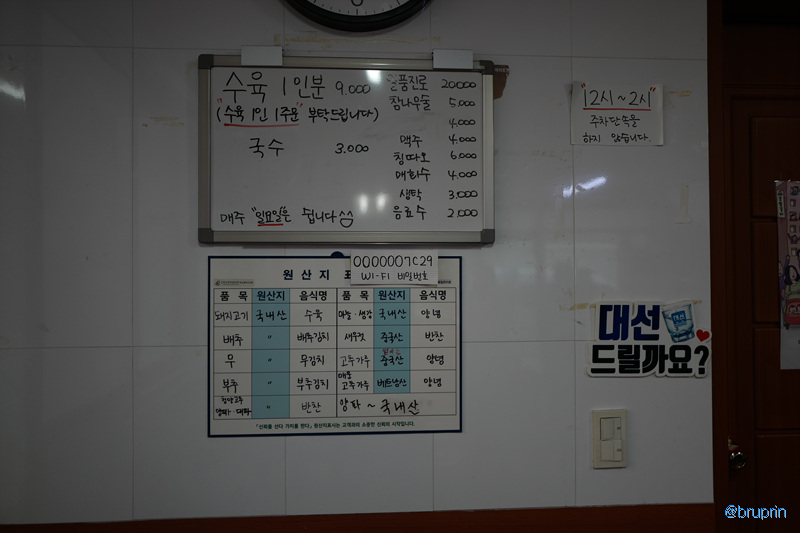 수육 1인분 9.000
("수육 1인 1주문" 부탁드립니다)
국수 3.000
매주 "일요일"은 쉽니다^^
일품진로 20.000
참나무술 5.000
4.000
맥주 4.000
칭따오 6.000
매화수 4.000
생탁 3.000
음료수 2.000
"12시~2시"
주차단속을
하지 않습니다.
0000007C29
WI-FI 비밀번호
원산지 표
품목 원산지 음식명 품목 원산지 음식명
돼지고기 국내산 수육 마늘·생강 국내산 양념
배추 〃 배추김치 새우젓 중국산 반찬
무 〃 무김치 고추가루 중국산 양념
부추 〃 부추김치 매운고추가루 베트남산 양념
청양고추 양파·대파 〃 반찬 양파 ~ 국내산
「신뢰를 산다 가치를 판다」 원산지표시는 고객과의 소중한 신뢰의 시작입니다.
대선
드릴까요?
@bruprin